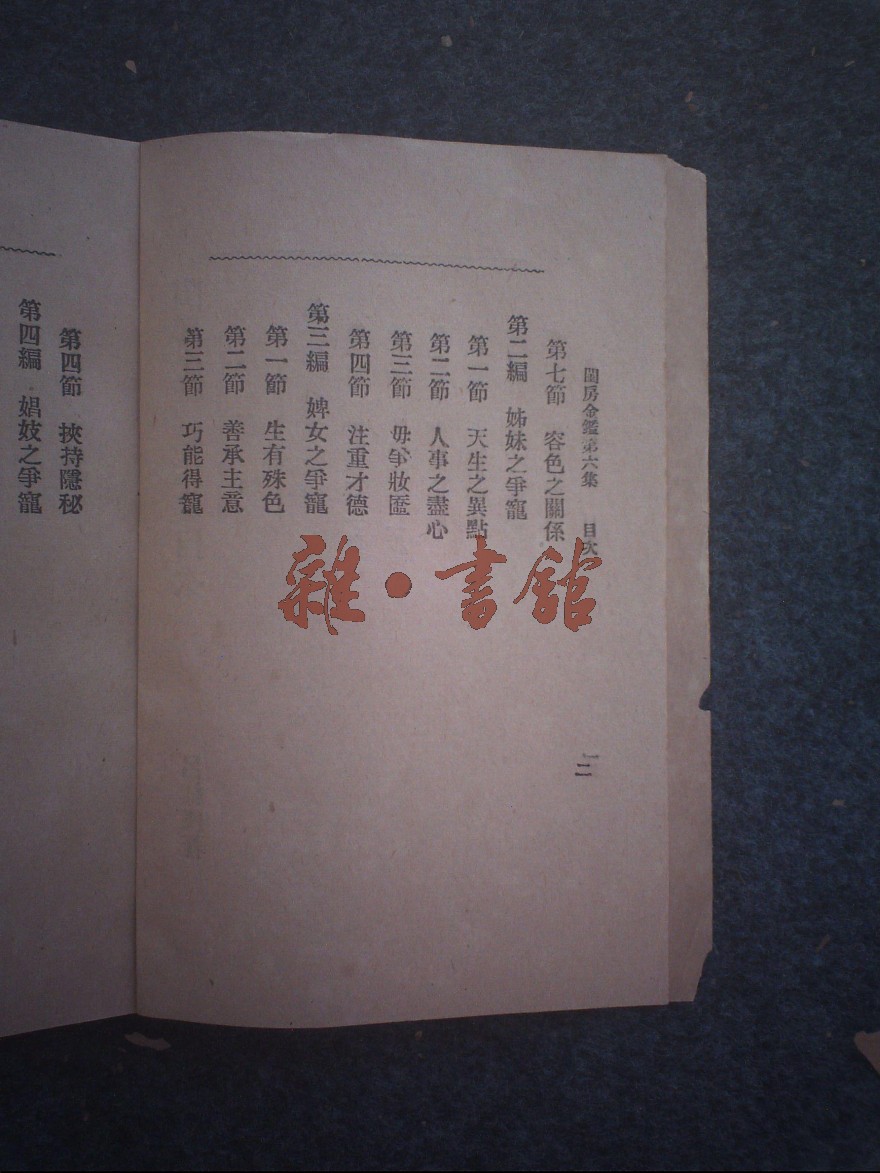 閨房金鑑第六集　目次
二
第七節　容色之關係
第二編　姊妹之爭寵
第一節　天生之異點
第二節　人事之盡心
第三節　毋爭妝匳
第四節　注重才德
第三編　婢女之爭寵
第一節　生有殊色
第二節　善承主意
第三節　巧能得寵
第四節　挾持隱秘
第四編　娼妓之爭寵
雜·書館